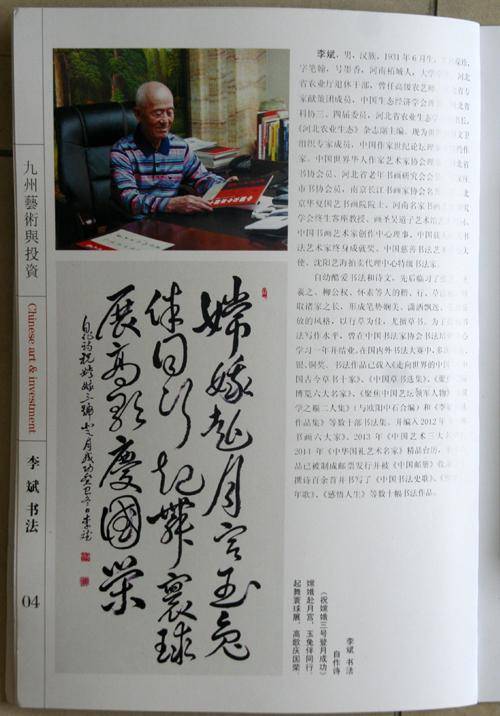 九州藝術與投資
Chinese art & investment
李斌书法
04
李斌，男，汉族，1931年6月生，
字笔翰，号墨香，河南柘城人，大学
省农业厅退休干部，曾任高级农艺师
家献策团成员，中国生态经济学会
科协三、四届委员，河北省农业生态学
《河北农业生态》杂志副主编。现为
组织专家成员，中国作家世纪论坛
家，中国世界华人作家艺术家协会理
书协会员，河北省老年书画研究会会员
市书协会员，南京长江书画家协会名
京华夏国艺书画院院士，河南名家书画艺
学会终生客座教授，画圣吴道子艺术馆
中国书画艺术家创作中心理事，中国
法艺术家终身成就奖，中国慈善书法艺术
使，沈阳艺海拍卖代理中心特级书法家。
自幼酷爱书法和诗文，先后临习了
羲之、柳公权、怀素等人的楷、行、草
取诸家之长，形成笔势娴美、潇洒飘逸
放的风格，以行草为佳，尤擅草书。为了
书法写作水平，曾在中国书法家协会书法培
心学习一年并结业。在国内外书法大赛中，多
银、铜奖。书法作品已载入《走向世界的中国
国古今草书十家》、《中国草书选集》、
博览六大名家》、《聚焦中国艺坛领军人物》
学之巅二人集》（与欧阳中石合编）和《李
作品集》等数十部书法集。并编入2012年
书画六大家》，2013年《中国艺术三大
2014年《中华国礼艺术名家》精品台历。
品已被制成邮票发行并被《中国邮册》收
撰诗百余首并书写了《中国书法史歌》、
年歌》、《感悟人生》等数十幅书法作品。
嫦娥赴月宫玉兔
伴同行起舞寰球
展高歌慶國榮
李斌 书法
自作诗
《祝嫦娥三号登月成功》
嫦娥赴月宫，玉兔伴同行，
起舞寰球展，高歌庆国荣。